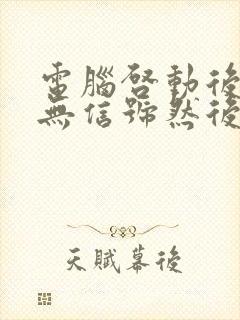 電腦啓動後
無信號然後
天賦幕後